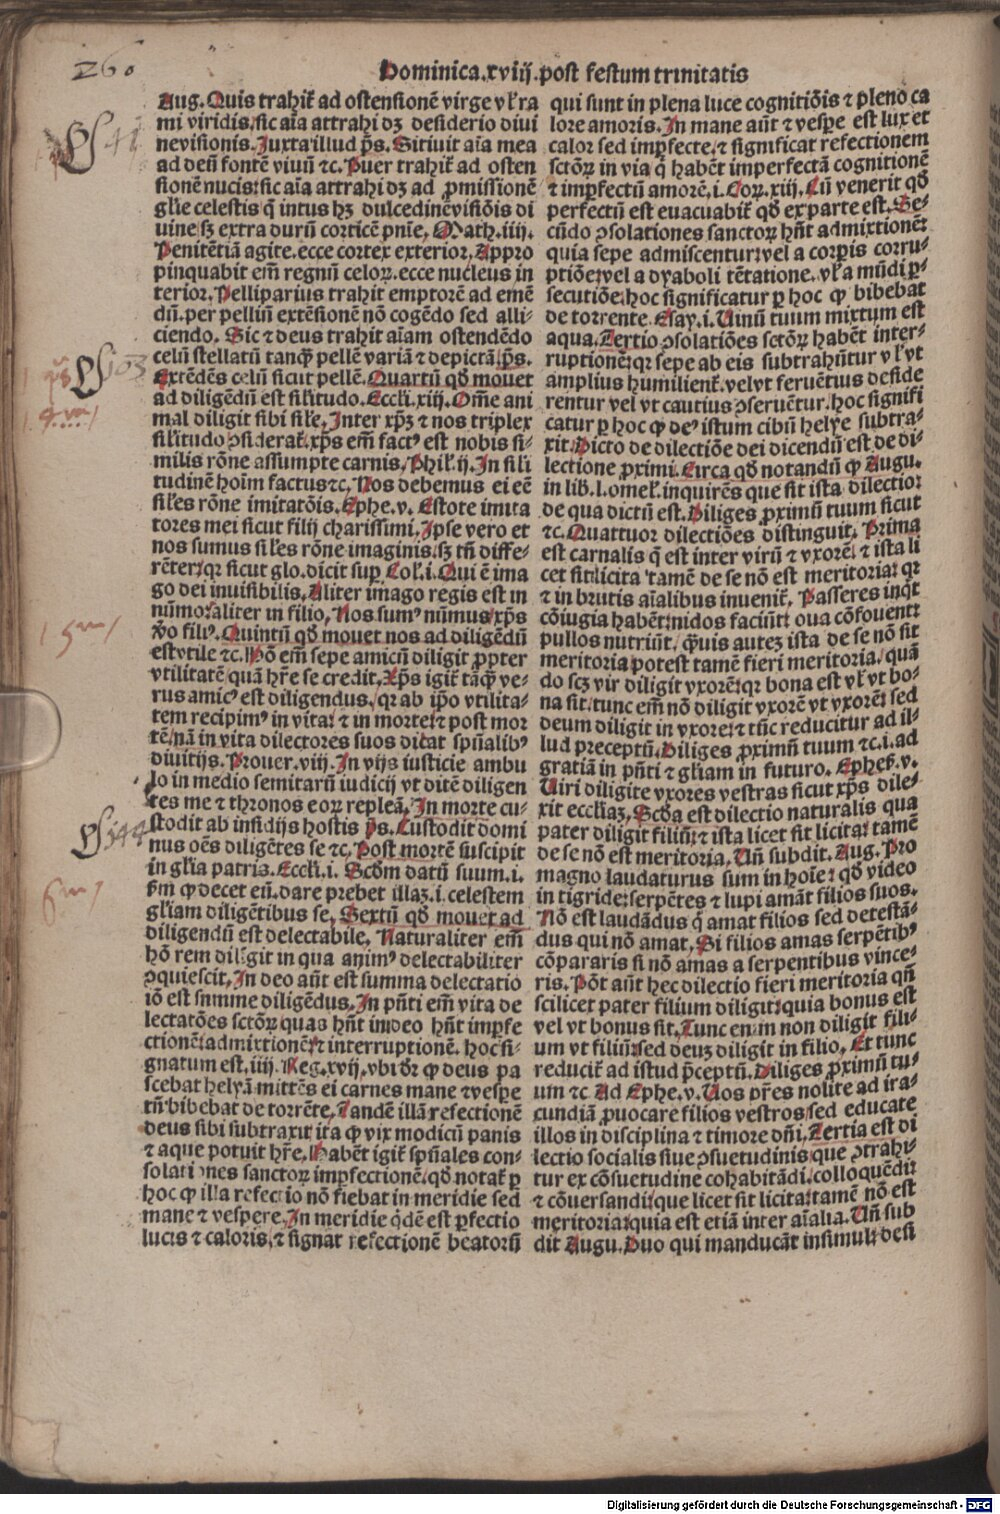 260
Dominica.xviij.post festum trinitatis
Aug. Quis trahit᷑ ad ostensionē virge vl̕ ra
mi viridis, sic aīa attrahi dꝫ desiderio diui
ne visionis. Juxta illud p̄s. Sitiuit aīa mea
ad deū fontē viuū ⁊c. Puer trahit᷑ ad osten
sionē nucis: sic aīa attrahi dꝫ ad ꝓmissionē
glīe celestis q̄ intus hꝫ dulcedinē visiōis di
uine sꝫ extra durū corticē pnīe. Math.iiij.
Penitētiā agite. ecce cortex exterior. Appro
pinquabit em̄ regnū celoꝝ. ecce nucleus in
terior. Pelliparius trahit emptorē ad emē
dū. per pelliū extēsionē nō cogēdo sed alli-
ciendo. Sic ⁊ deus trahit aīam ostendēdo
celū stellatū tanqȝ pellē variā ⁊ depictā. p̄s.
Extēdēs celū sicut pellē. Quartū qd̕ mouet
ad diligēdū est silītudo. Eccli.xiij. Om̄e ani
mal diligit sibi sil̕e. Inter xp̄ꝫ ⁊ nos triplex
silītudo ꝯsiderat᷑. xp̄s em̄ factꝰ est nobis si-
milis rōne assumpte carnis. Phil̕.ij. In sili
tudinē hoīm factus ⁊c. Nos debemus ei eē
sil̕es rōne imitatōis. Ephe.v. Estote imita
tores mei sicut filij charissimi. Ipse vero et
nos sumus sil̕es rōne imaginis. sꝫ tn̄ diffe-
rēter: qꝛ sicut glo. dicit sup̱ Col̕.i. Qui ē ima
go dei inuisibilis. Aliter imago regis est in
nūmo: aliter in filio. Nos sumꝰ nūmus xp̄s
v̄o filiꝰ. Quintū qd̕ mouet nos ad diligēdū
est vtile ⁊c. Hō em̄ sepe amicū diligit ꝓpter
vtilitatē quā hr̄e se credit. Xp̄s igit᷑ tāqȝ ve-
rus amicꝰ est diligendus. qꝛ ab ip̄o vtilita-
tem recipimꝰ in vita: ⁊ in morte: ⁊ post mor
tē. nā in vita dilectores suos ditat spūalibꝰ
diuitijs. Prouer.viij. In vijs iusticie ambu
lo in medio semitarū iudicij vt ditē diligen
tes me ⁊ thronos eoꝝ repleā. In morte cu-
stodit ab insidijs hostis p̄s. Custodit domi
nus oēs diligētes se ⁊c. Post mortē suscipit
in glīa patria. Eccli.i. Scdm datū suum.i.
ẜm ꝙ decet eū. dare prebet illaꝫ.i. celestem
glīam diligētibus se. Sextū qd̕ mouet ad
diligendū est delectabile. Naturaliter em̄
hō rem diligit in qua animꝰ delectabiliter
ꝯquiescit. In deo aūt est summa delectatio
iō est summe diligēdus. In pn̄ti em̄ vita de
lectatōes sctōꝝ quas hn̄t in deo hn̄t imꝑfe
ctionē: admixtionē: ⁊ interruptionē. hoc si-
gnatum est.iiij. Reg.xvij. vbi dr̄ ꝙ deus pa
scebat helyā mittēs ei carnes mane ⁊ vesꝑe
tn̄ bibebat de torrēte. Tandē illā refectionē
deus sibi subtraxit ita ꝙ vix modicū panis
⁊ aque potuit hr̄e. Habēt igit᷑ spūales con-
solationes sanctoꝝ imꝑfectionē. qd̕ notat᷑ ꝑ
hoc ꝙ illa refectio nō fiebat in meridie sed
mane ⁊ vespere. In meridie q̇dē est ꝑfectio
lucis ⁊ caloris. ⁊ signat refectionē beatorū
qui sunt in plena luce cognitiōis ⁊ pleno ca
lore amoris. In mane aūt ⁊ vesꝑe est lux et
calor sed imꝑfecte. ⁊ significat refectionem
sctōꝝ in via q̇ habēt imperfectā cognitionē
⁊ imꝑfectū amorē.i. Coꝝ.xiij. Cū venerit qd̕
perfectū est euacuabit᷑ qd̕ ex parte est. Se-
cūdo ꝯsolationes sanctoꝝ hn̄t admixtionē:
quia sepe admiscentur: vel a corꝑis corru-
ptiōe: vel a dyaboli tētatione. vl̕ a mūdi ꝑ-
secutiōe: hoc significatur ꝑ hoc ꝙ bibebat
de torrente. Esay.i. Uinū tuum mixtum est
aqua. Tertio ꝯsolatiōes sctōꝝ habēt inter-
ruptionē: qꝛ sepe ab eis subtrahūtur vl̕ vt
amplius humilient᷑. vel vt feruētius deside
rentur vel vt cautius ꝯseruētur. hoc signifi
catur ꝑ hoc ꝙ deꝰ istum cibū helye subtra-
xit. Dicto de dilectiōe dei dicendū est de di-
lectione ꝓximi. Circa qd̕ notandū ꝙ Augu.
in lib.l.omel̕. inquirēs que sit ista dilectio:
de qua dictū est. Diliges ꝓximū tuum sicut
⁊c. Quattuor dilectiōes distinguit. Prima
est carnalis q̄ est inter virū ⁊ vxorē: ⁊ ista li
cet sit licita tamē de se nō est meritoria: qꝛ
⁊ in brutis aīalibus inuenit᷑. Passeres inqͥt
cōiugia habēt: nidos faciūt: oua cōfouent:
pullos nutriūt. q̄uis autez ista de se nō sit
meritoria potest tamē fieri meritoria. quā
do scꝫ vir diligit vxorē: qꝛ bona est vl̕ vt bo-
na sit: tunc em̄ nō diligit vxorē vt vxorē: sed
deum diligit in vxore: ⁊ tūc reducitur ad il-
lud preceptū. Diliges ꝓximū tuum ⁊c.i. ad
gratiā in pn̄ti ⁊ glīam in futuro. Ephes̕.v.
Uiri diligite vxores vestras sicut xp̄s dile-
xit eccl̕iaꝫ. Scd̕a est dilectio naturalis qua
pater diligit filiū: ⁊ ista licet sit licita: tamē
de se nō est meritoria. Un̄ subdit. Aug. Pro
magno laudaturus sum in hoīe: qd̕ video
in tigride: serpētes ⁊ lupi amāt filios suos.
Nō est laudādus q̇ amat filios sed detestā-
dus qui nō amat. Si filios amas serpētibꝰ
cōpararis si nō amas a serpentibus vince-
ris. Pōt aūt hec dilectio fieri meritoria qn̄
scilicet pater filium diligit: quia bonus est
vel vt bonus sit. Tunc enim non diligit fili-
um vt filiū: sed deuꝫ diligit in filio. Et tunc
reducit᷑ ad istud p̄ceptū. Diliges ꝓximū tu-
um ⁊c Ad Ephe.v. Uos pr̄es nolite ad ira-
cundiā ꝓuocare filios vestros: sed educate
illos in disciplina ⁊ timore dn̄i. Tertia est di
lectio socialis siue ꝯsuetudinis: que ꝯtrahi-
tur ex cōsuetudine cohabitādi. colloquēdi:
⁊ cōuersandi: que licet sit licita: tamē nō est
meritoria: quia est etiā inter aīalia. Un̄ sub
dit Augu. Duo qui manducāt insimul: desi
Ps 41
Ps 103
4m
5m
Ps 144
6m
Digitalisierung gefördert durch die Deutsche Forschungsgemeinschaft - DFG